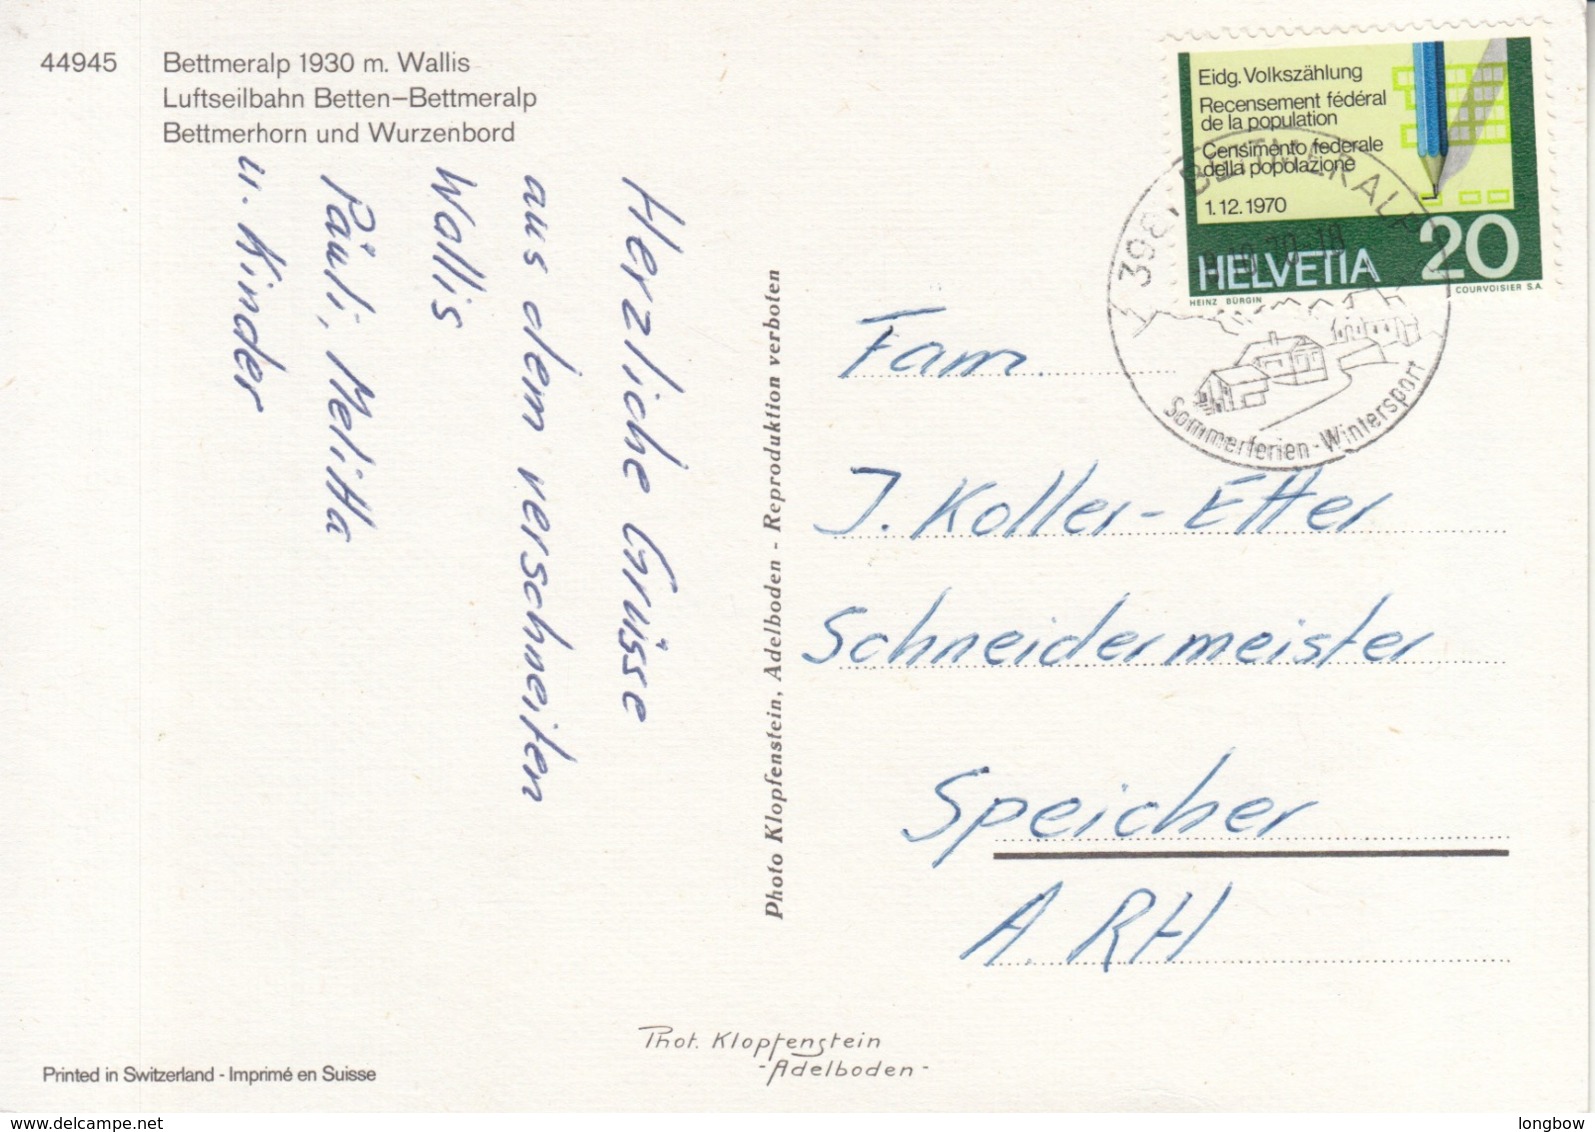 44945
Bettmeralp 1930 m. Wallis
Luftseilbahn Betten–Bettmeralp
Bettmerhorn und Wurzenbord
Herzliche Grüsse
aus dem verschneiten
Wallis
Päuli, Melitta
u. Kinder
Photo Klopfenstein, Adelboden - Reproduktion verboten
Eidg. Volkszählung
Recensement fédéral
de la population
Censimento federale
della popolazione
1.12.1970
HELVETIA 20
HEINZ BÜRGIN
COURVOISIER S.A.
BETTMERALP
Sommerferien - Wintersport
Fam.
J. Koller-Etter
Schneidermeister
Speicher
A. RH
Phot. Klopfenstein
-Adelboden-
Printed in Switzerland - Imprimé en Suisse
www.delcampe.net
longbow